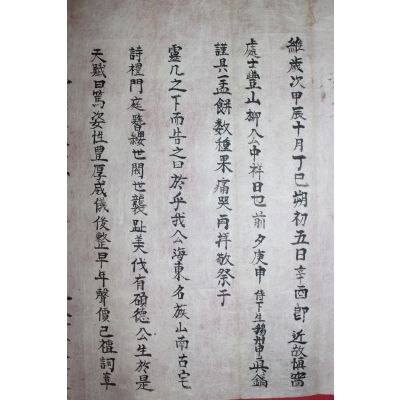 維歲次甲辰十月丁巳朔初五日辛酉卽 近故愼窩
處士豊山柳公中祥日也前夕庚申 侍下生 眞鎬
謹具一盂餠數種果痛哭再拜敬祭于
靈几之下而告之曰於乎我公海東名族山南古宅
詩禮門庭簪纓世閥世襲趾美代有碩德公生於是
天賦曰篤姿性豊厚威儀俊整早年聲價已擅詞章